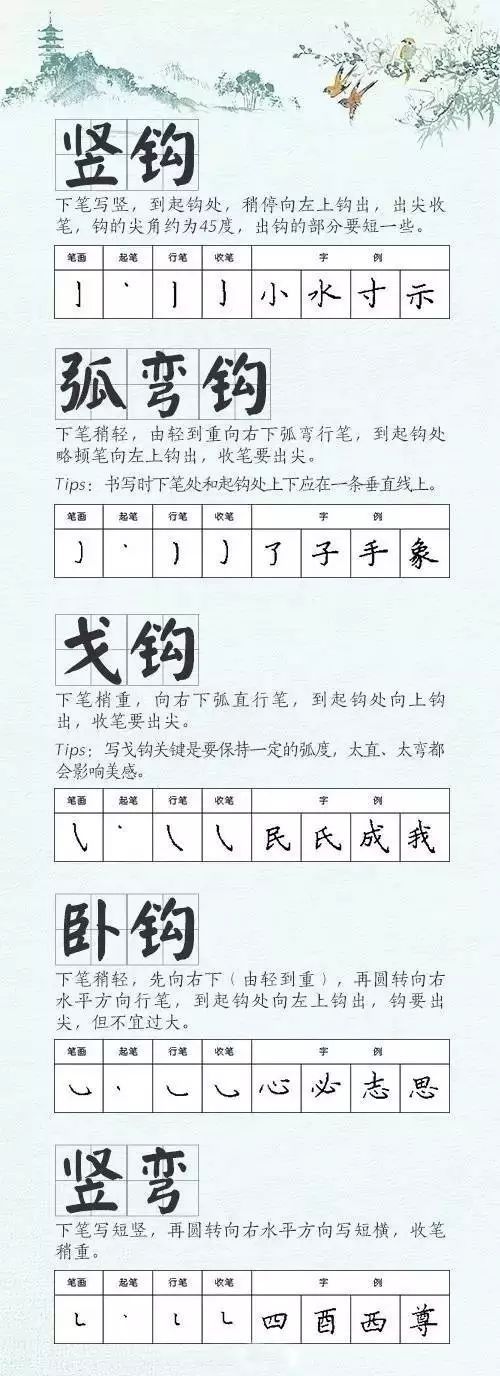 竖钩
下笔写竖，到起钩处，稍停向左上钩出，出尖收
笔，钩的尖角约为45度，出钩的部分要短一些。
笔画 起笔 行笔 收笔 字 例
亅 丶 丨 亅 小 水 寸 示
弧弯钩
下笔稍轻，由轻到重向右下弧弯行笔，到起钩处
略顿笔向左上钩出，收笔要出尖。
Tips：书写时下笔处和起钩处上下应在一条垂直线上。
笔画 起笔 行笔 收笔 字 例
了 子 手 象
戈钩
下笔梢重，向右下弧直行笔，到起钩处向上钩
出，收笔要出尖。
Tips：写戈钩关键是要保持一定的弧度，太直、太弯都
会影响美感。
笔画 起笔 行笔 收笔 字 例
民 氏 成 我
卧钩
下笔稍轻，先向右下（由轻到重），再圆转向右
水平方向行笔，到起钩处向左上钩出，钩要出
尖，但不宜过大。
笔画 起笔 行笔 收笔 字 例
心 必 志 思
竖弯
下笔写短竖，再圆转向右水平方向写短横，收笔
稍重。
笔画 起笔 行笔 收笔 字 例
四 酉 西 尊